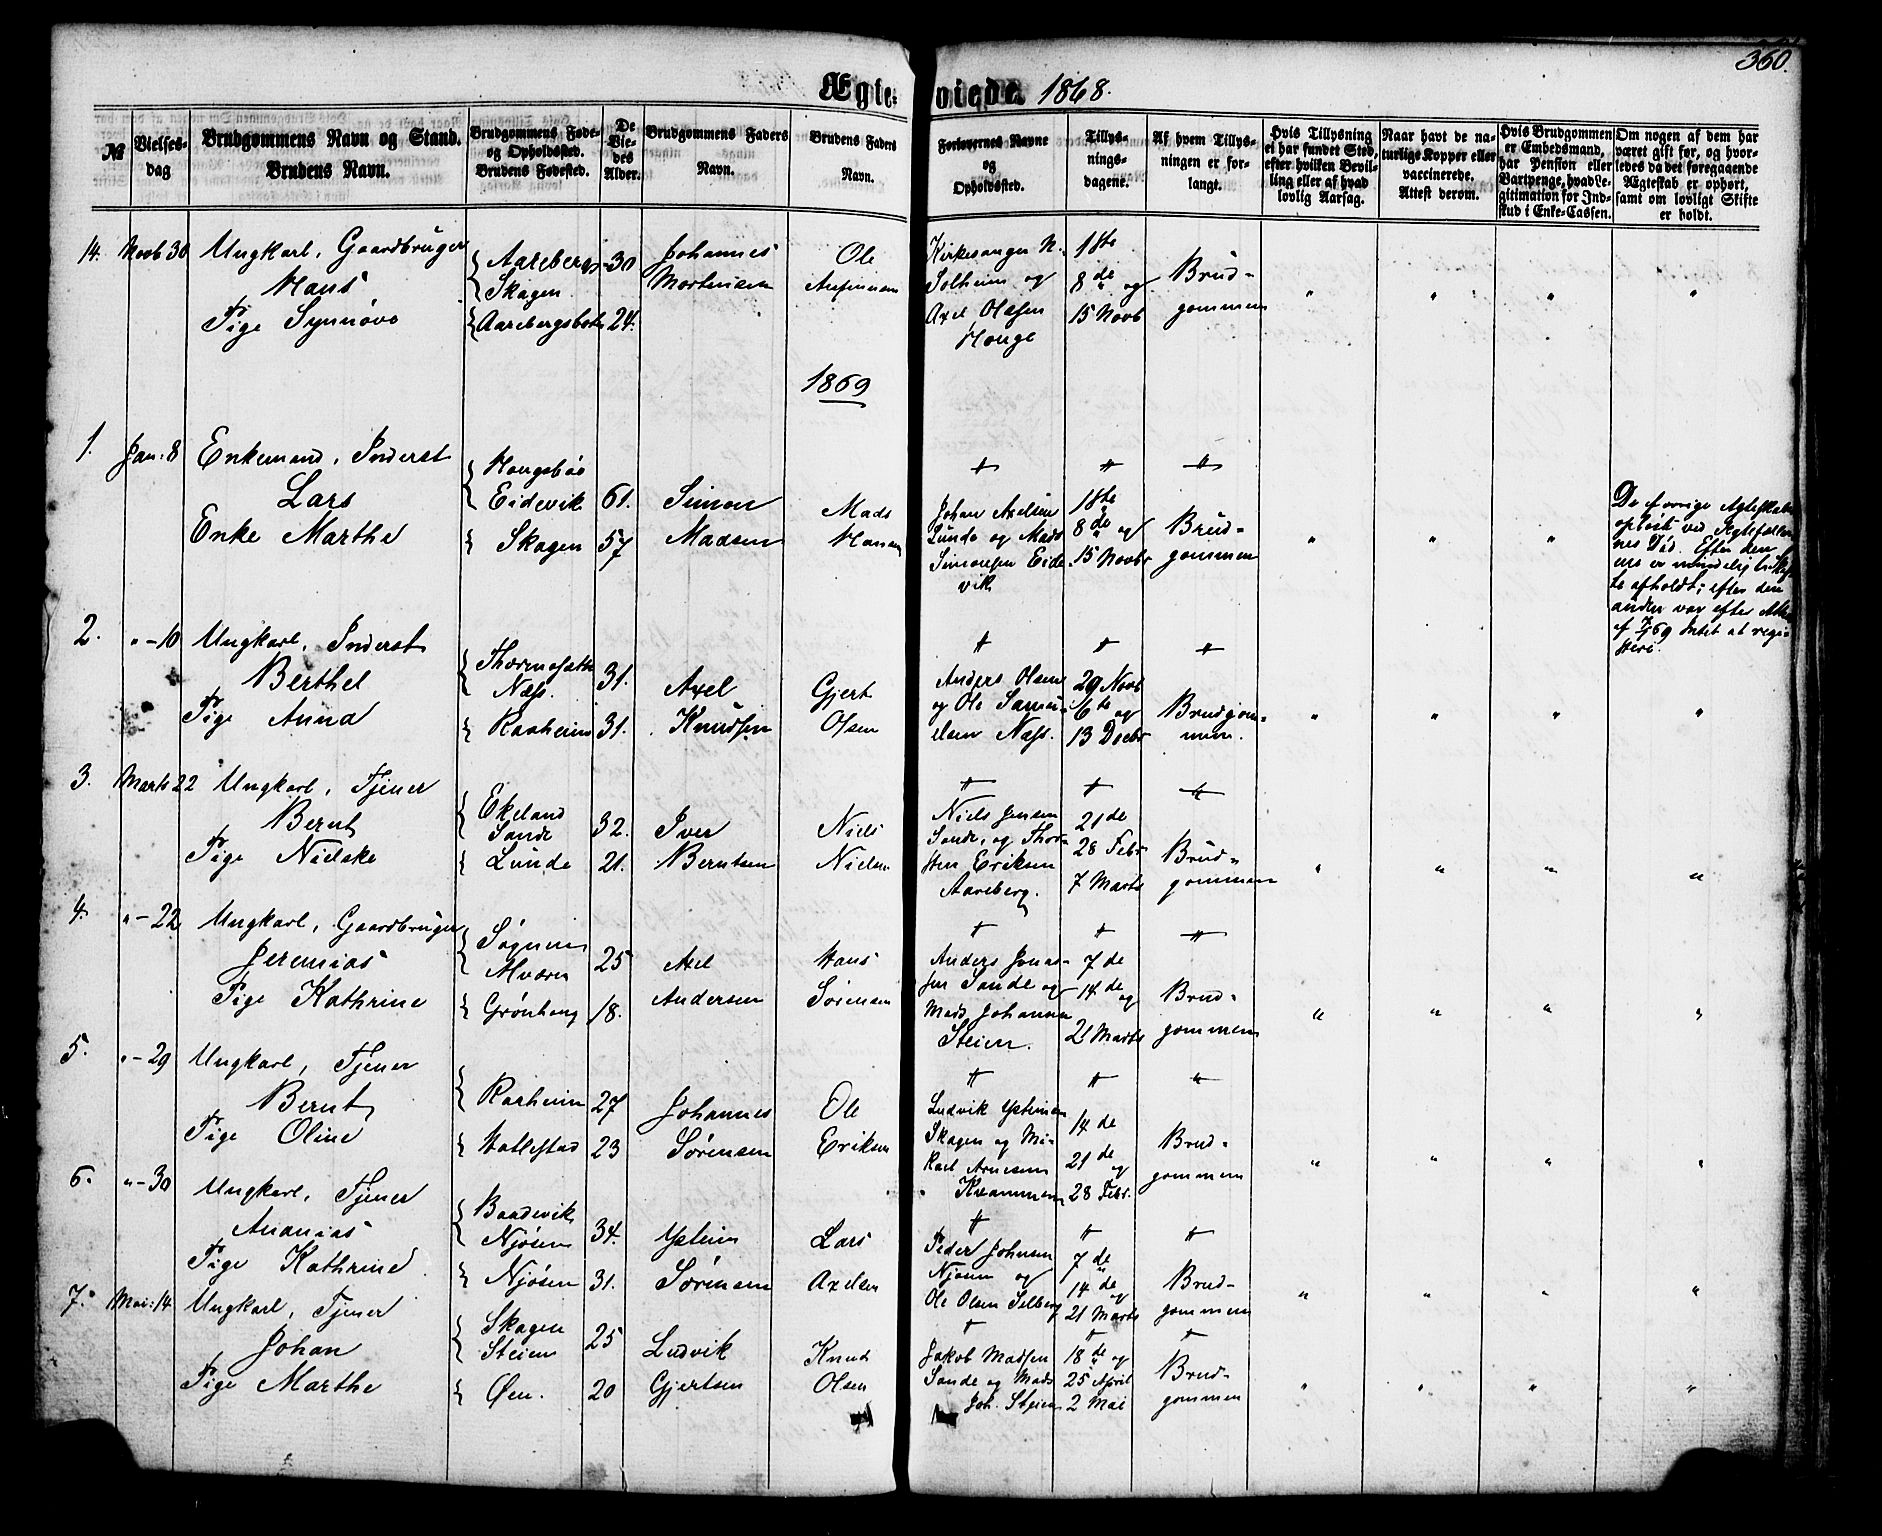 360.
Ægte- viede. 1868.
№
Vielses-
dag
Brudgommens Navn og Stand.
Brudens Navn.
Brudgommens Føde-
og Opholdssted.
Brudens Fødested.
De
Vie-
des
Alder.
Brudgommens Faders
Navn.
Brudens Faders
Navn.
Forlovernes Navne
og
Opholdssted.
Tillys-
nings-
dagene.
Af hvem Tillys-
ningen er for-
langt.
Hvis Tillysning
ei har fundet Sted,
efter hvilken Bevil-
ling eller af hvad
lovlig Aarsag.
Naar havt de na-
turlige Kopper eller
vaccinerede.
Attest derom.
Hvis Brudgommen
er Embedsmand,
har Pension eller
Vartpenge, hvad Le-
gitimation for Ind-
skud i Enke-Cassen.
Om nogen af dem har
været gift før, og hvor-
ledes da det foregaaende
Ægteskab er ophørt,
samt om lovligt Skifte
er holdt.
14. Novb 30
Ungkarl, Gaardbruger
Hans
Pige Synnøve
Skagen
24.
Johannes
Mortensen
Ole
Kirkesanger N.
Solheim og
Axel Olsen
Houge
1ste
8de og
15 Novb
Brud-
gommen
" " " "
1869
1. Jan: 8
Enkemand, Inderst
Lars
Enke Marthe
Eidevik 61.
Skagen 57
Simon
Madsen
Mads
Hansen
Johan Axelsen
Lunde og Mads
Simonsen Eide
vik
1ste
8de og
15 Novbr
Brud-
gommen
" " "
De forrige Ægteskaber
opløst ved Ægtefæller
nes Død. Efter den
te afholdt; efter den
anden var efter
69 Intet at regi-
stere.
2. " - 10
Ungkarl, Inderst
Berthel
Pige Anna
Næss. 31.
Raaheim 31.
Axel
Knudsen
Gjert
Olsen
Anders Olsen
og Ole Samu-
elsen Næss.
29 Novb
6te og
13 Decbr
Brudgom-
men.
" " " "
3. Marts 22
Ungkarl, Tjener
Bernt
Pige Nielske
Ekeland
Sande 32.
Lunde 21.
Iver
Berntsen
Niels
Nielsen
Niels Jensen
Sande, og Thor-
sten Eriksen
Aareberg.
21de
28 Febr
7 Marts
Brud-
gommen
" " " "
4. " - 22
Ungkarl, Gaardbruger
Jeremias
Pige Kathrine
25
Grønhaug 18.
Axel
Andersen
Hans
Sørensen
Anders Jonas-
sen Sande og
Mads Johannes
Steien.
7de
14de og
21 Marts
Brud-
gommen
" " " "
5. " - 29
Ungkarl, Tjener
Bernt
Pige Oline
Raaheim 27
Hatlestad 23
Johannes
Sørensen
Ole
Eriksen
Ludvik
Skagen og Mi-
kael Arnesen
Kvammen
14de
21de og
28 Febr.
Brud-
gommen
" " " "
6. " - 30
Ungkarl, Tjener
Ananias
Pige Kathrine
Njøsen 34.
Njøsen 31.
Sørensen
Lars
Axelsen
Peder Johnsen
Njøsen og
Ole Olsen Selberg
7de
14de og
21 Marts
Brud-
gommen
" " " "
7. Mai: 14
Ungkarl, Tjener
Johan
Pige Marthe
Skagen
Steien 25
Øen. 20
Ludvik
Gjertsen
Knud
Olsen
Jakob Madsen
Sande og Mads
Joh. Steien
18de og
25 April
2 Mai
Brud-
gommen
" " " "